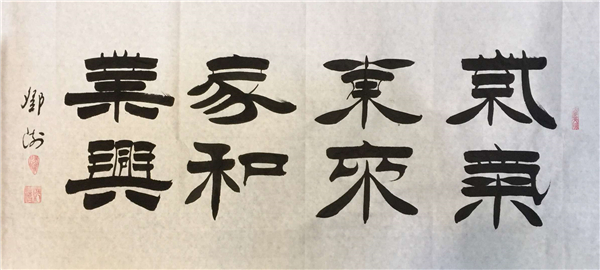 紫氣
東來
家和
業興